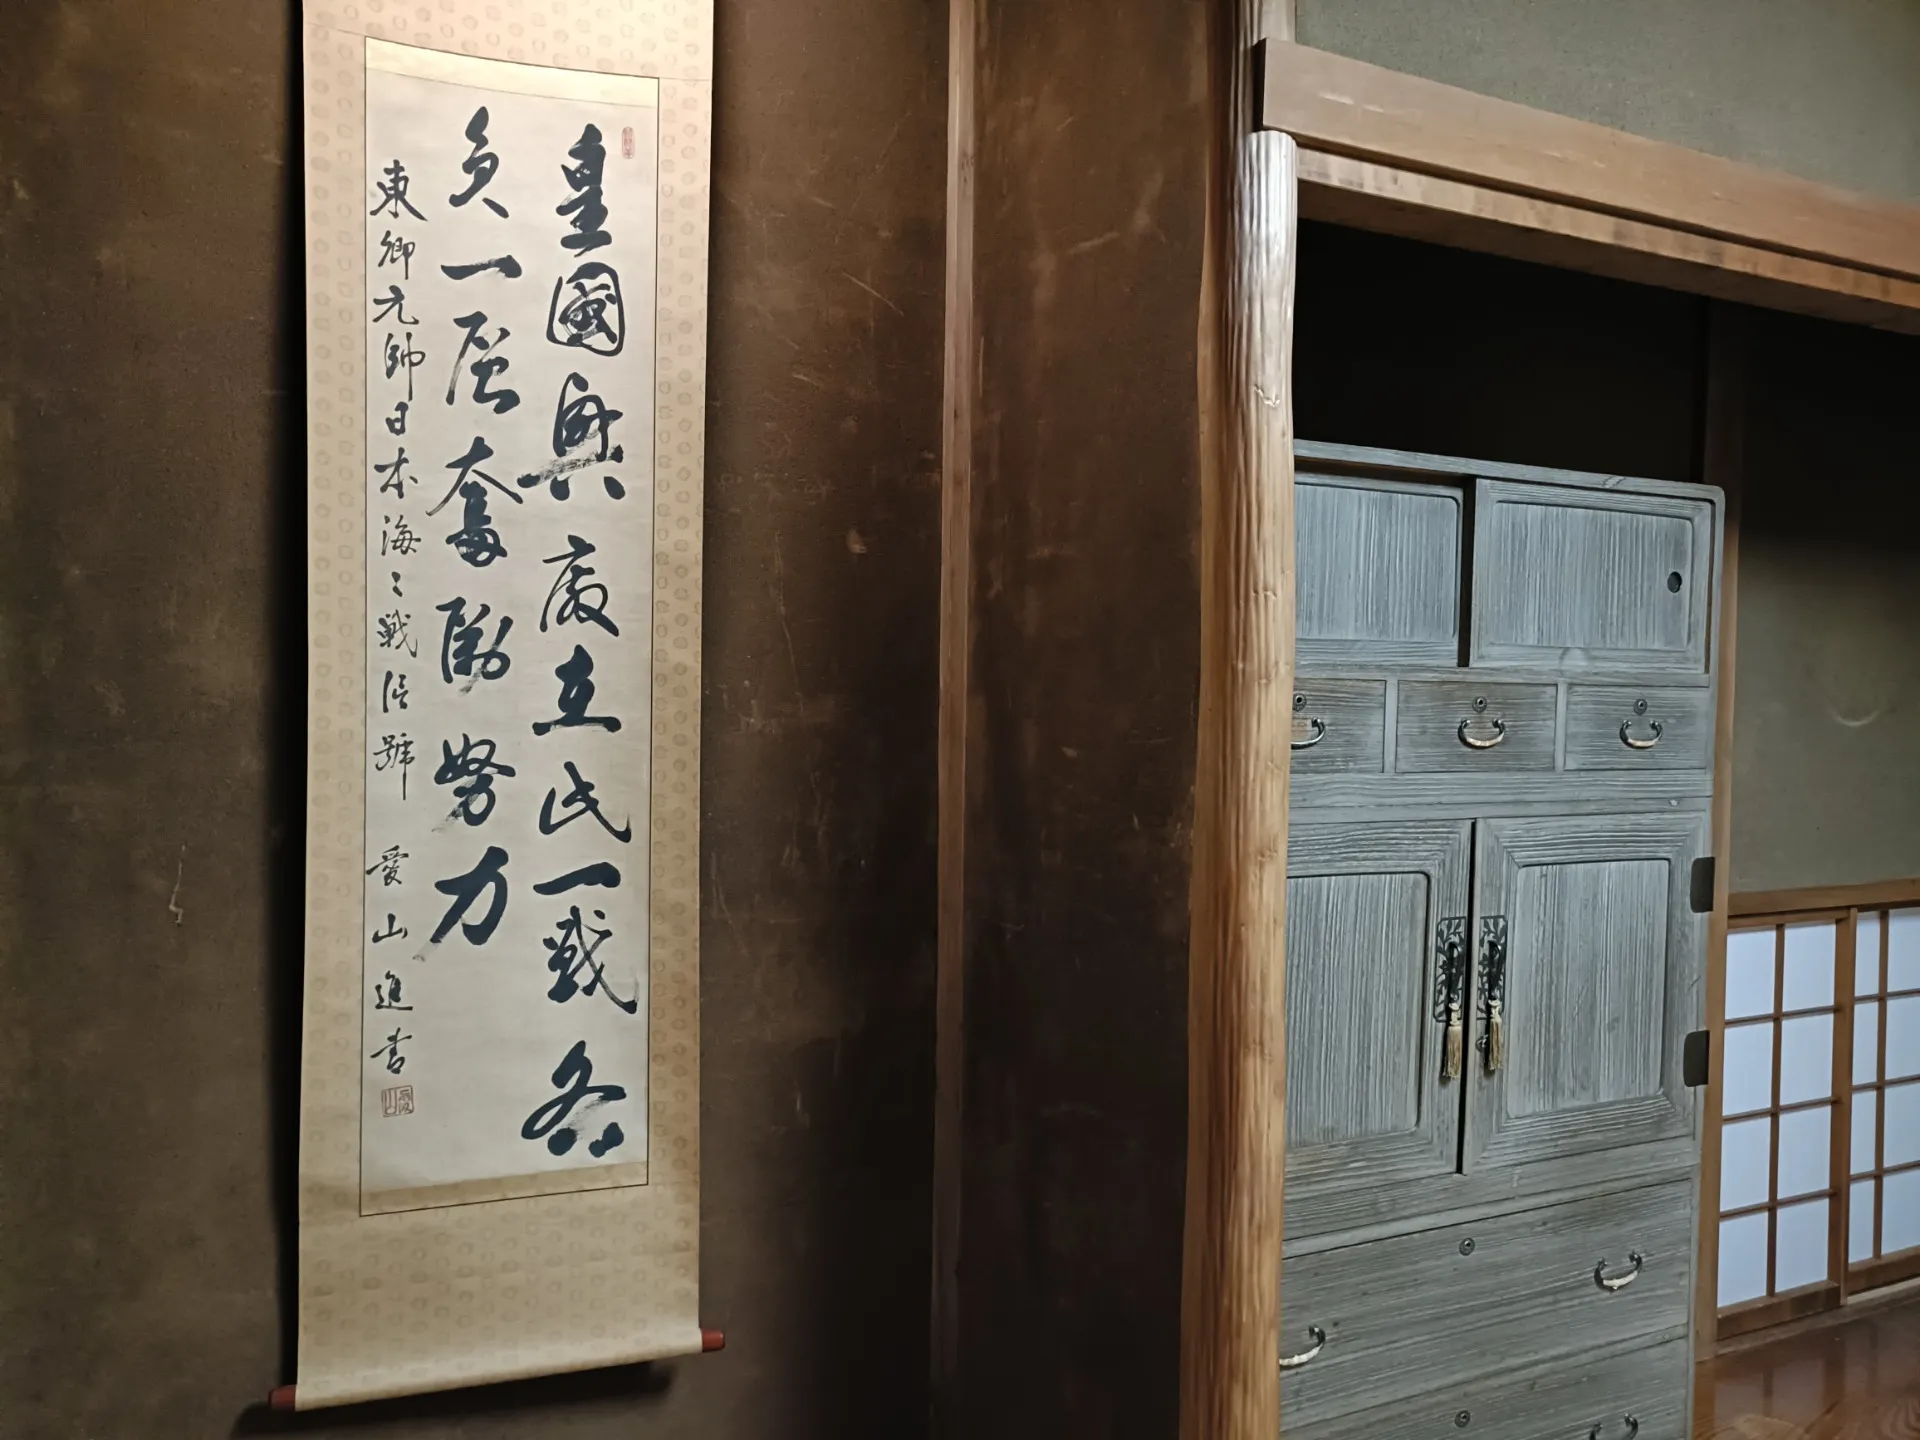 皇國興廢在此一戰各
員一層奮勵努力
東郷元帥日本海之戰信號 愛山進書